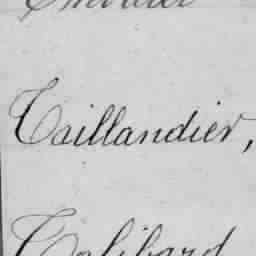 Taillandier,
Talibard